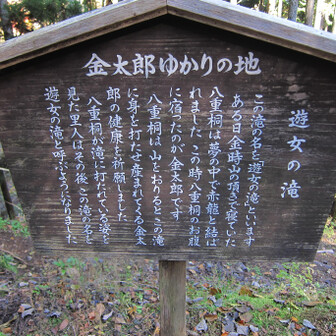 金太郎ゆかりの地
遊女の滝
この滝の名を遊女の滝といいます
ある日金時山の頂きで寝ていた
八重桐は夢の中で赤龍と結ば
れました この時八重桐のお腹
に宿ったのが金太郎です
八重桐は山をおりるとこの滝
に身を打たせ産まれてくる金太
郎の健康を祈願しました
八重桐が滝に打たれている姿を
見た里人はその後この滝の名を
遊女の滝と呼ぶようになりました